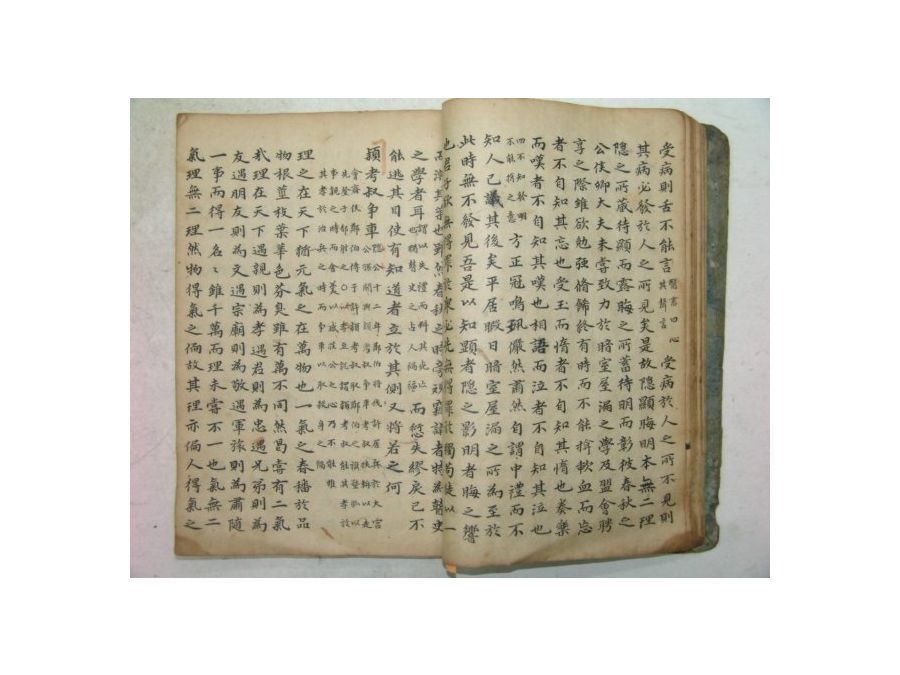 受病則舌不能言 醫書曰心其聲言 受病於人之所不見則
其病必發於人之所見矣是故隱顯晦明本無二理
隱之所藏待顯而露晦之所蓄待明而彰彼春秋之
公侯卿大夫未嘗致力於暗室屋漏之學及盟會聘
享之際雖欲勉强脩飾終有時而不能揜歃血而忘
者不自知其忘也受玉而惰者不自知其惰也奏樂
而嘆者不自知其嘆也相語而泣者不自知其泣也
四不知發明不能揜之意 方正冠鳴珮儼然肅然自謂中禮而不
知人已議其後矣平居暇日暗室屋漏之所為至於
此時無不發見吾是以知顯者隱之影明者晦之響
也君子欲無得罪於衆必先無得罪於獨
之學者耳 而悠失繆戾已不
能逃其目使有知道者立於其側又將若之何
潁考叔爭車
理之在天下猶元氣之在萬物也一氣之春播於品
物根莖枝葉華色芬臭雖有萬不同然曷嘗有二氣
哉理在天下遇親則為孝遇君則為忠遇兄弟則為
友遇朋友則為義遇宗廟則為敬遇軍旅則為肅隨
一事而得一名名雖千萬而理未嘗不一也氣無二
氣理無二理然物得氣之偏故其理亦偏人得氣之